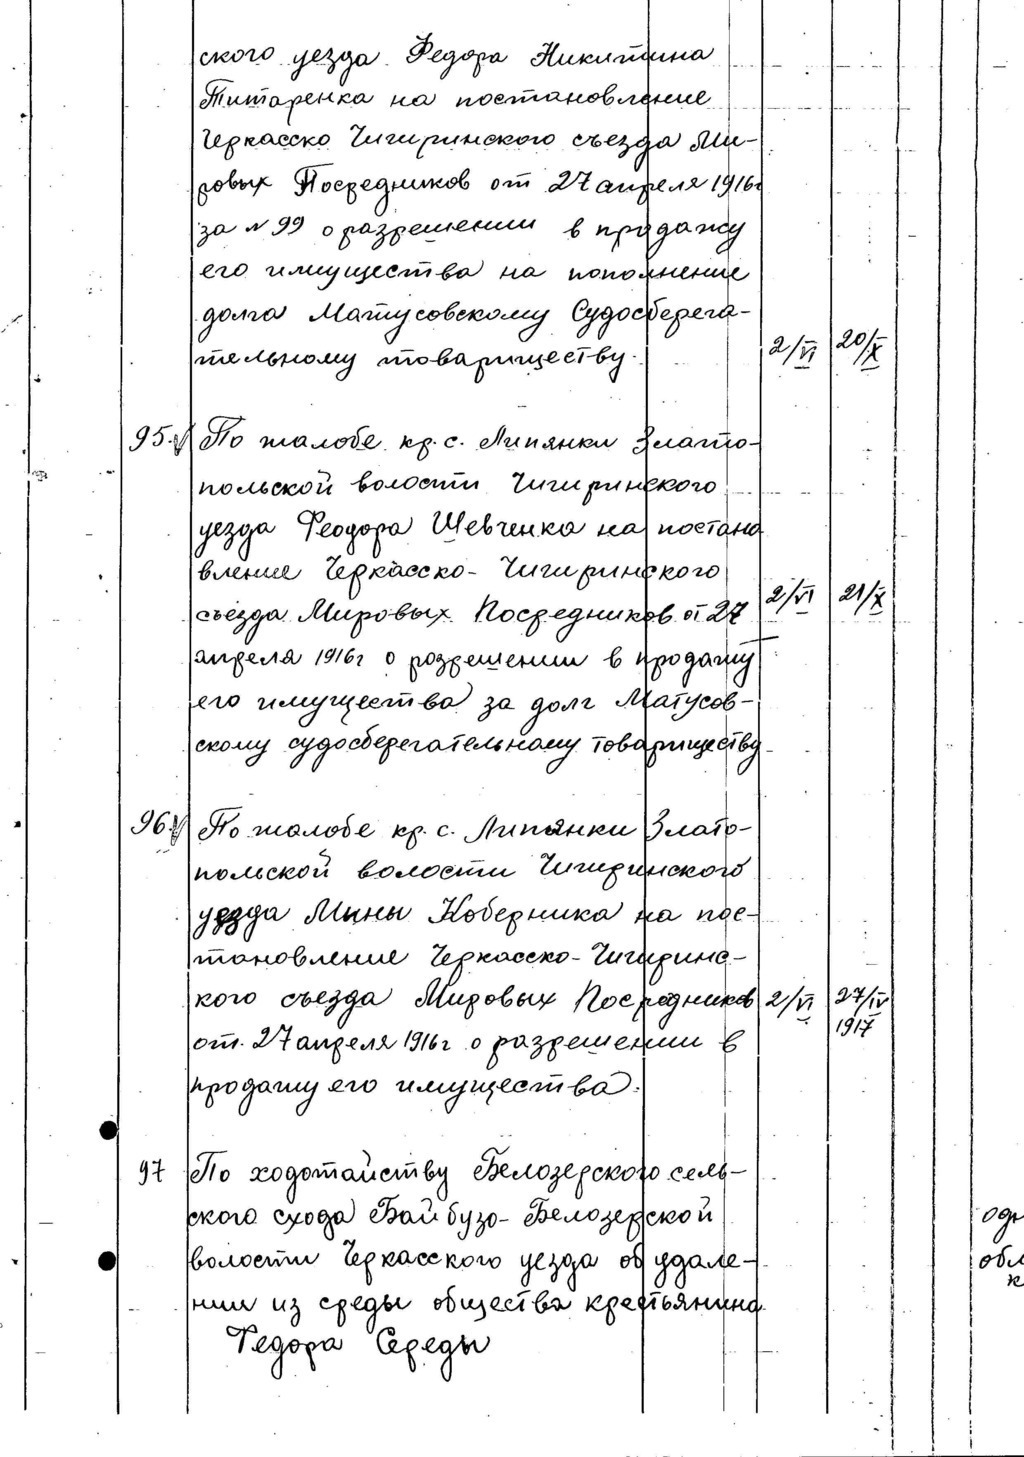 ского уезда Федора Никитина
Титаренка на постановление
Черкасско Чигиринского съезда Ми-
ровых Посредников от 27 апреля 1916г
за № 99 о разрешении в продажу
его имущества на пополнение
долга Матусовскому Судосберега-
тельному товариществу. 2/VI 20/X
95. По жалобе кр. с. Липянки Злато-
польской волости Чигиринского
уезда Феодора Шевченка на постано
вление Черкасско-Чигиринского
съезда Мировых Посредников от 27 2/VI 21/X
апреля 1916г о розрешении в продажу
его имущества за долг Матусов-
скому судосберегательному товариществу
96. По жалобе кр. с. Липянки Злато-
польской волости Чигиринского
уезда Мины Коберника на пос-
тановление Черкасско-Чигиринс-
кого съезда Мировых Посредников 2/VI 27/IV
1917
от 27 апреля 1916г о разрешении в
продажу его имущества.
97 По ходотайству Белозерского сель-
ского схода Байбузо-Белозерской
волости Черкасского уезда об удале-
нии из среды общества крестьянина
Федора Середы